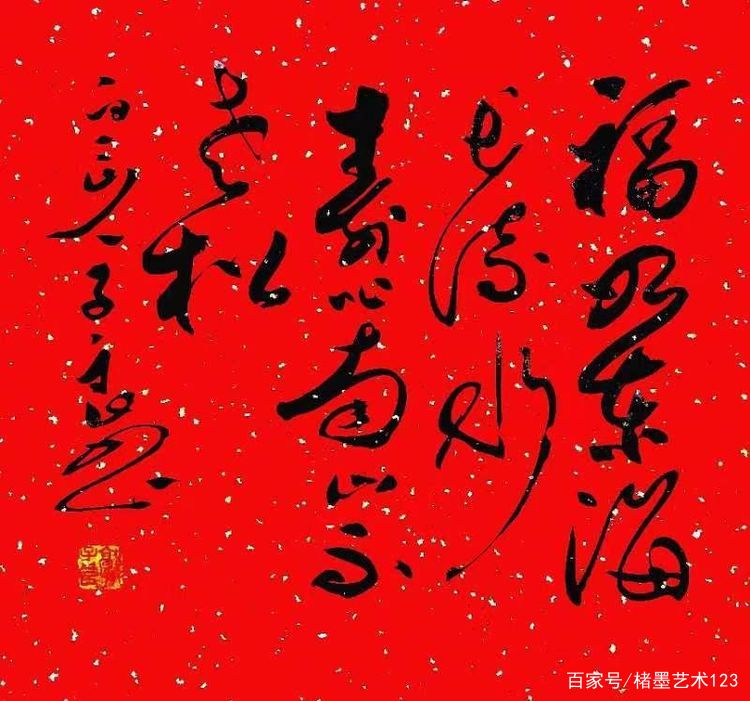 福如东海
长流水
寿比南山不
老松
百家号/楮墨艺术123